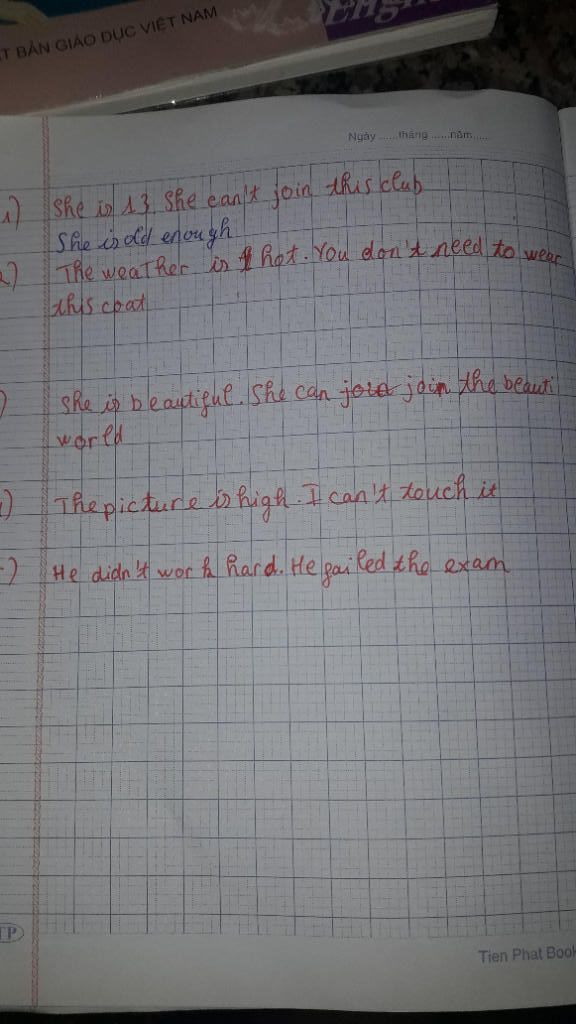 T BẢN GIÁO DỤC VIỆT NAM
Eng
Ngày ......tháng ......năm......
1) She is 13. She can't join this club
She is old enough
2) The weather is hot. You don't need to wear
this coat
) She is beautiful. She can join the beauti
world
) The picture is high. I can't touch it
) He didn't work hard. He failed the exam
TP
Tien Phat Book